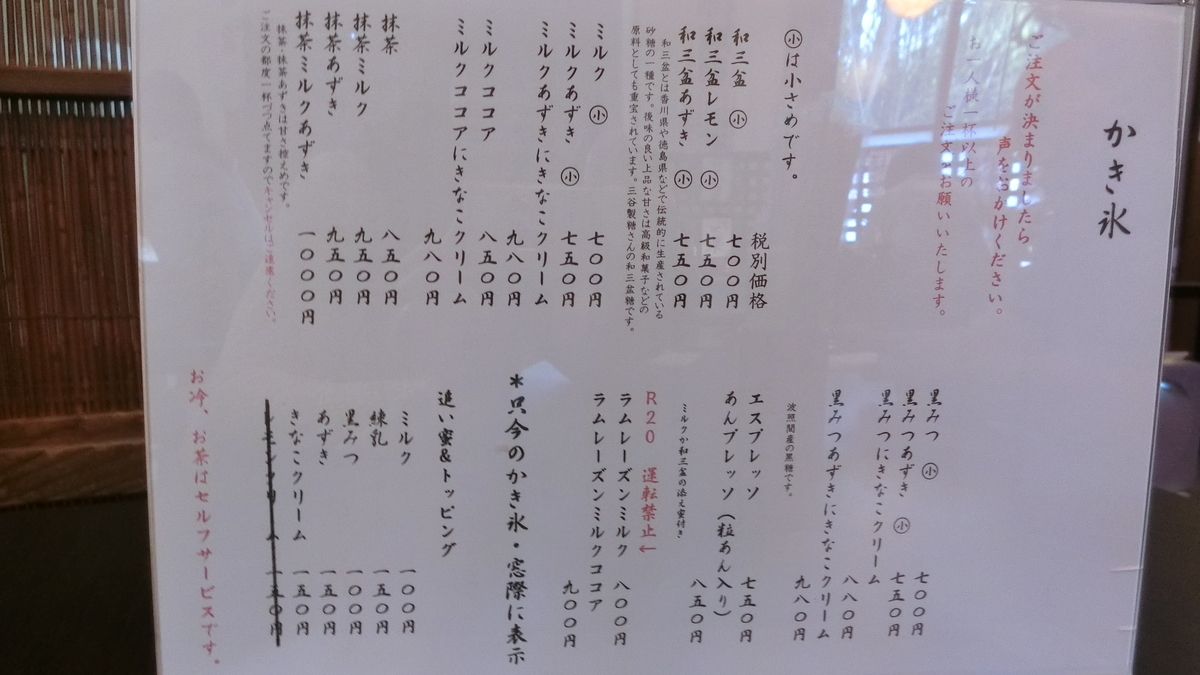 かき氷
ご注文が決まりましたら
声をおかけください。
お一人様一杯以上の
ご注文をお願いいたします。
㋛は小さめです。
税別価格
和三盆 小 七〇〇円
和三盆レモン 小 七五〇円
和三盆あずき 小 七五〇円
和三盆とは香川県や徳島県などで伝統的に生産されている
砂糖の一種です。後味の良い上品な甘さは高級和菓子などの
原料としても重宝されています。三谷製糖さんの和三盆糖です。
ミルク 小 七〇〇円
ミルクあずき 小 七五〇円
ミルクあずきにきなこクリーム
九八〇円
ミルクココア 八五〇円
ミルクココアにきなこクリーム
九八〇円
抹茶 八五〇円
抹茶ミルク 九五〇円
抹茶あずき 九五〇円
抹茶ミルクあずき 一〇〇〇円
抹茶・抹茶あずきは甘さ控えめです。
ご注文の都度一杯づつ点てますのでキャンセルはご遠慮ください。
黒みつ 小 七〇〇円
黒みつあずき 小 七五〇円
黒みつにきなこクリーム
八八〇円
黒みつあずきにきなこクリーム
九八〇円
波照間産の黒糖です。
エスプレッソ 七五〇円
あんプレッソ(粒あん入り)
八五〇円
ミルクか和三盆の添え蜜付き
R20 運転禁止←
ラムレーズンミルク 八〇〇円
ラムレーズンミルクココア
九〇〇円
*只今のかき氷・窓際に表示
追い蜜&トッピング
ミルク 一〇〇円
練乳 一五〇円
黒みつ 一〇〇円
あずき 一五〇円
きなこクリーム 一五〇円
一五〇円
お冷、お茶はセルフサービスです。